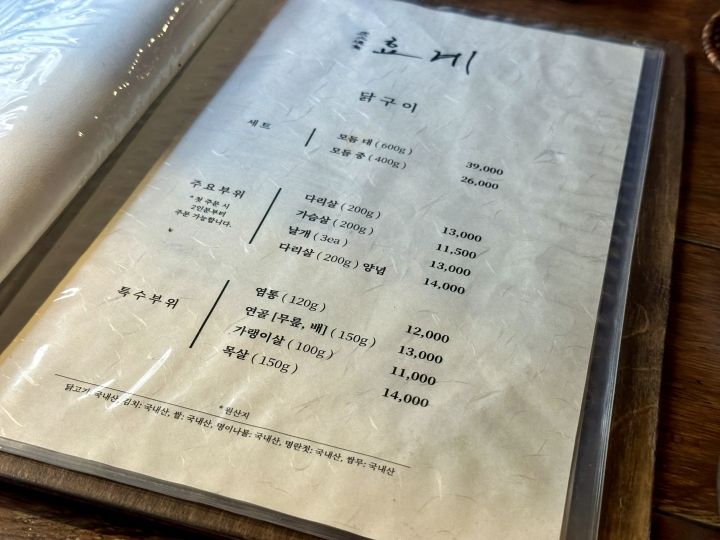 효계
닭구이
세트
모듬 대 (600g) 39,000
모듬 중 (400g) 26,000
주요부위
*첫 주문 시
2인분부터
주문 가능합니다.
다리살 (200g) 13,000
가슴살 (200g) 11,500
날개 (3ea) 13,000
다리살 (200g) 양념 14,000
특수부위
염통 (120g) 12,000
연골 [무릎, 배] (150g) 13,000
가랭이살 (100g) 11,000
목살 (150g) 14,000
*원산지
닭고기: 국내산, 김치: 국내산, 쌀: 국내산, 명이나물: 국내산, 명란젓: 국내산, 쌈무: 국내산